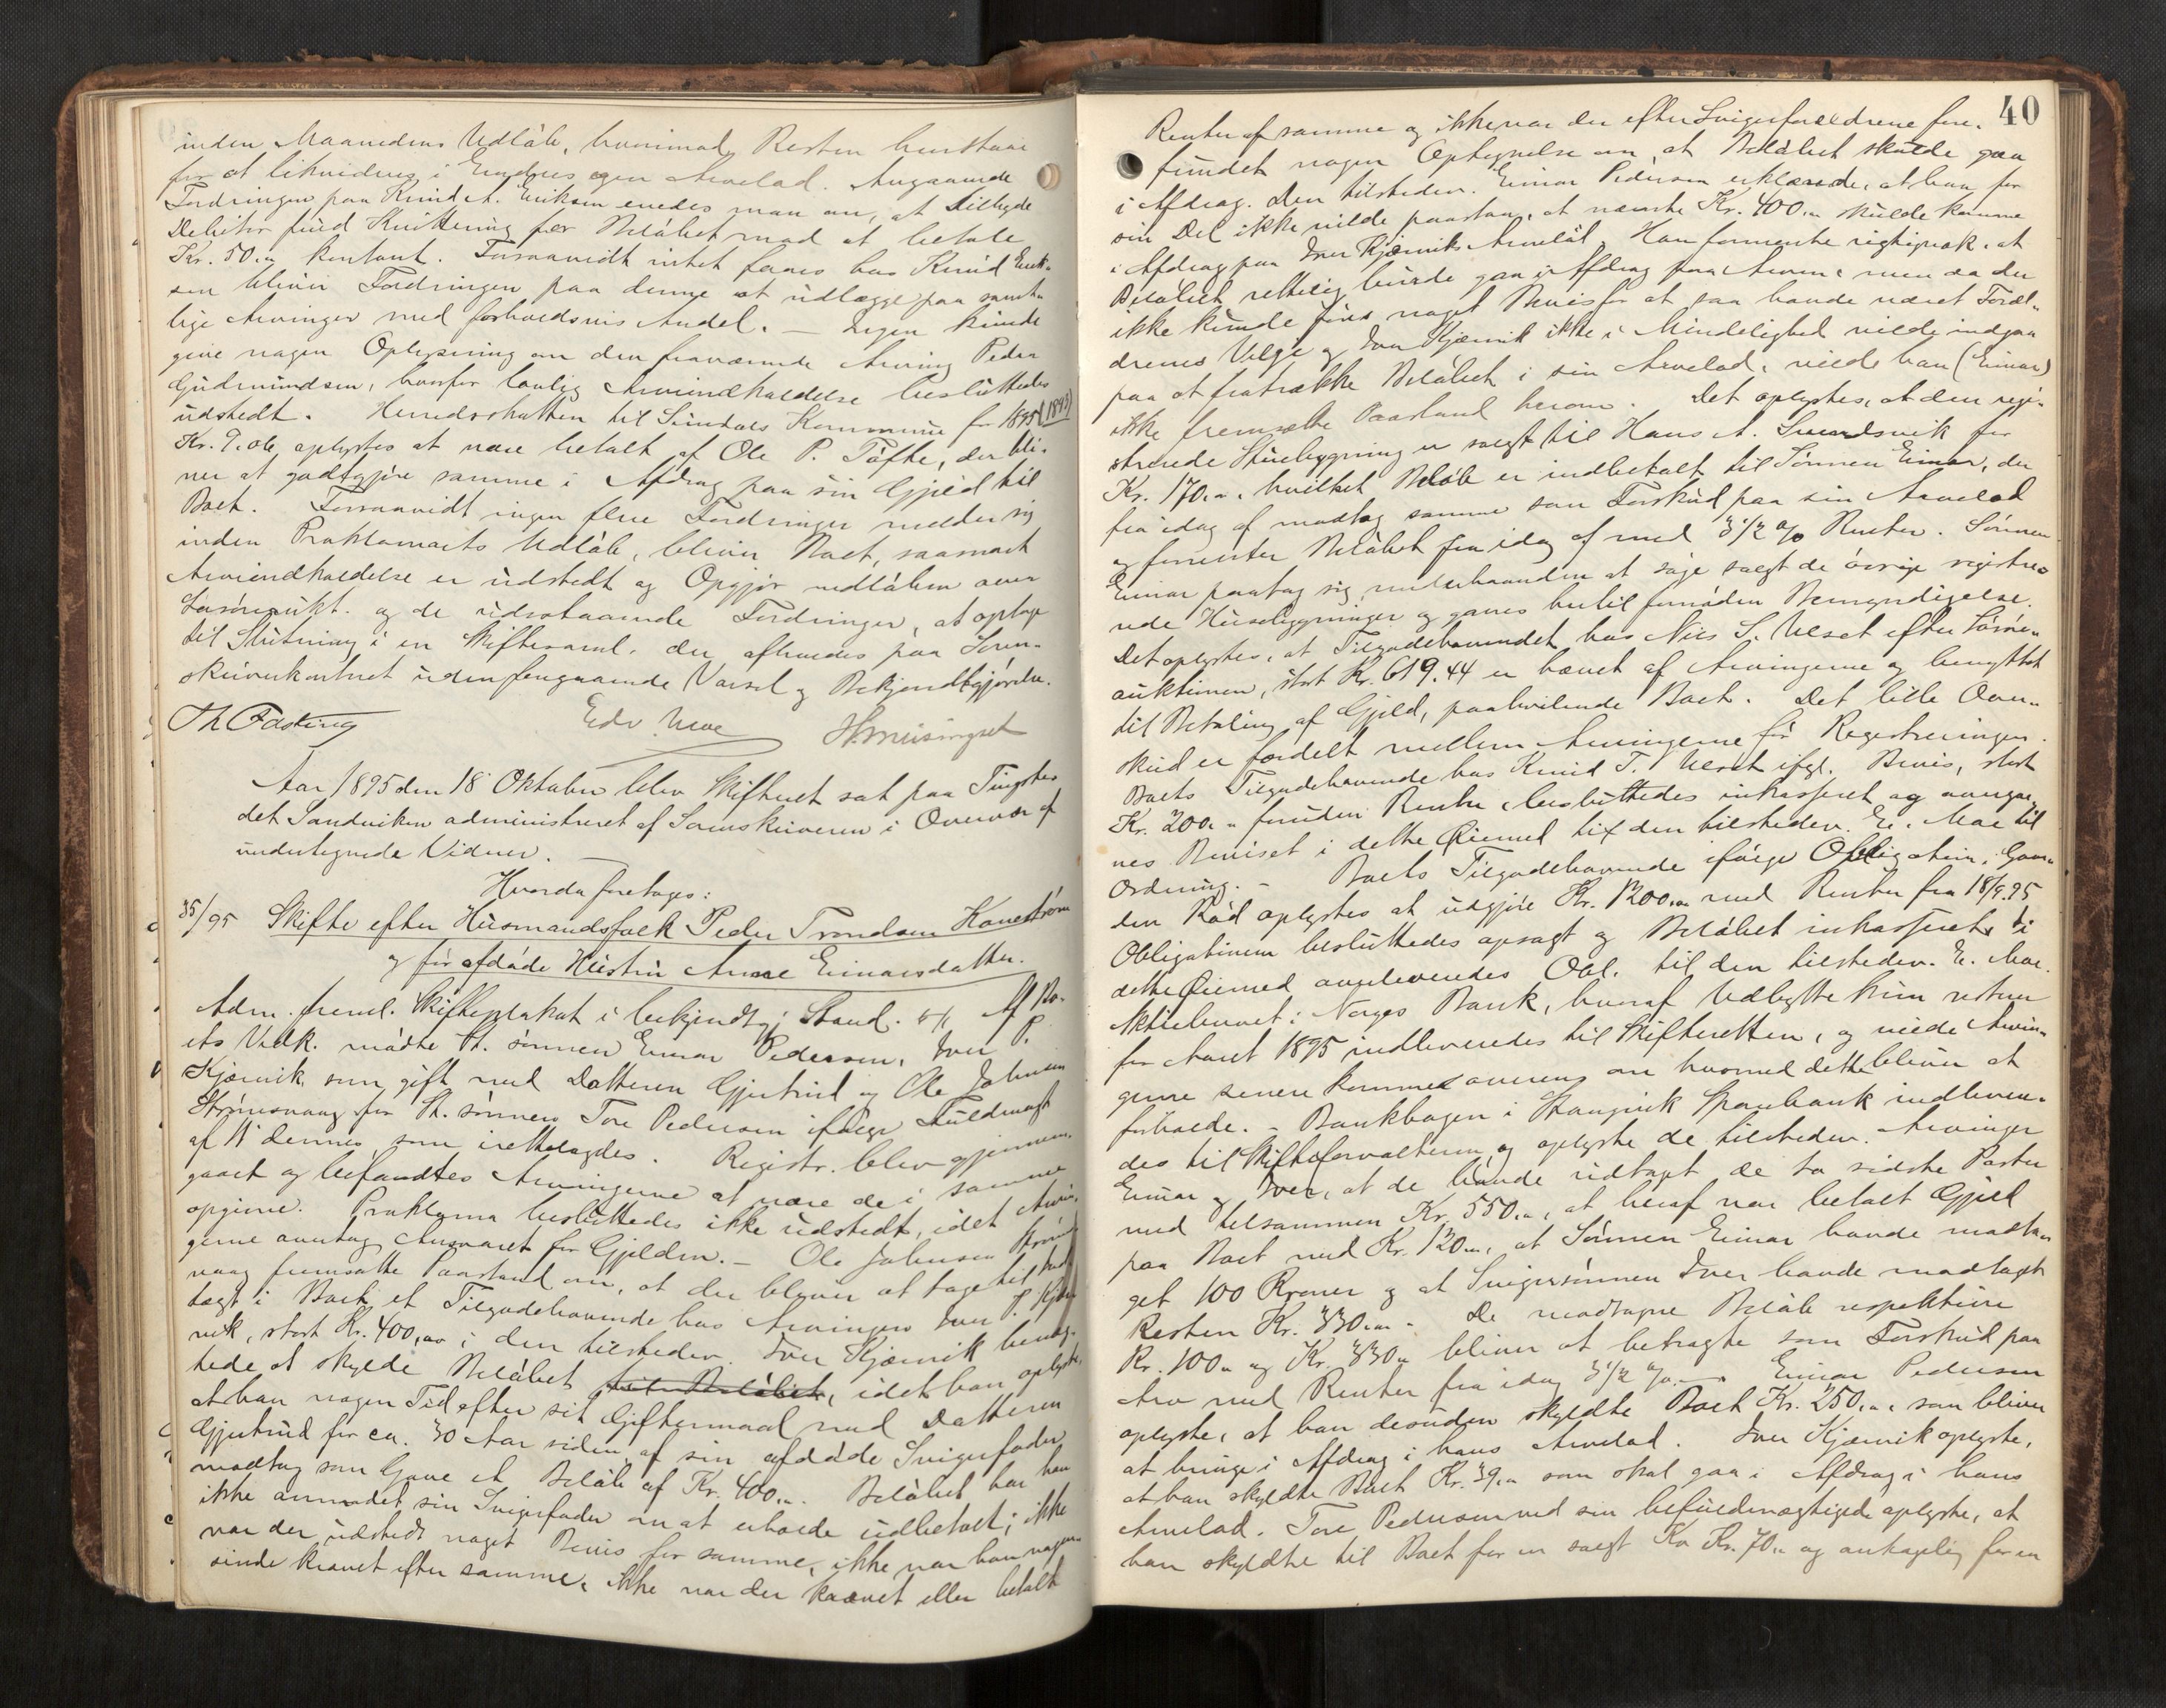 inden Maanedens Udløb, hvorimod Resten henstaar
for at likvideres i Endres egen Arvelod. Angaaende
Fordringen paa Knud A. Eriksen enedes man om, at tilbyde
Debitor fuld Kvittering for Beløbet mod at betale
Kr. 50.„ kontant. Forsaavidt intet faaes hos Knud Erik-
sen bliver Fordringen paa denne at udlægge paa samt-
lige Arvinger med forholdsvis Andel. — Ingen kunde
give nogen Oplysning om den fraværende Arving Peder
Gudmundsen, hvorfor lovlig Arveindkaldelse besluttedes
udstedt. Herredsskatten til Sundals Kommune for 1895 (1893)
Kr. 9.06, oplystes at være betalt af Ole P. Tøfte, der bli-
ver at godtgjøre samme i Afdrag paa sin Gjæld til
Boet. Forsaavidt ingen flere Fordringer melder sig
inden Proklamaets Udløb, bliver Boet, saasnart
Arveindkaldelse er udstedt og Opgjør indløben over
Løsøreaukt. og de udestaaende Fordringer, at optage
til Slutning i en Skiftesaml. der afholdes paa Soren-
skriverkontoret uden foregaaende Varsel og Bekjendtgjørelse.
Th Fasting
Edv. Moe
Aar 1895 den 18' Oktober blev Skifteret sat paa Tingste-
det Sandviken administreret af Sorenskriveren i Overvær af
undertegnede Vidner.
Hvorda foretoges:
35/95 Skifte efter Husmandsfolk Peder Trondsen Kanestrøm
og før afdøde Hustru Anne Einarsdatter.
Adm. freml. Skifteplakat i bekjendtgj. Stand. Af Bo-
ets Vedk. mødte St. sønnen Einar Pedersen, Iver P.
Kjørsvik, som gift med Datteren Gjertrud og Ole Johnsen
Strømsvaag for St. sønnen Tore Pedersen ifølge Fuldmagt
af 11' dennes, som irettelagdes. Registr. blev gjennem-
gaaet og befandtes Arvingerne at være de i samme
opgivne. Proklama besluttedes ikke udstedt, idet Arvin-
gerne overtog Ansvaret for Gjælden. — Ole Johnsen Strøms-
vaag fremsatte Paastand om, at der bliver at tage til Ind-
tægt i Boet et Tilgodehavende hos Arvingen Iver P. Kjørs-
vik, stort Kr. 400,00 i den tilstedev. Iver Kjørsvik benæg-
tede at skylde Beløbet, idet han oplyste,
at han nogen Tid efter sit Giftermaal med Datteren
Gjertrud for ca. 30 Aar siden af sin afdøde Svigerfader
modtog som Gave et Beløb af Kr. 400.„. Beløbet har han
ikke anmodet sin Svigerfader om at erholde udbetalt; ikke
var der udstedt noget Bevis for samme, ikke var han nogen-
sinde krævet efter samme, ikke var der krævet eller betalt
40
Renter af samme og ikke var der efter Svigerforældrene fore-
fundet nogen Optegnelse om, at Beløbet skulde gaa
i Afdrag. Den tilstedev. Einar Pedersen erklærede, at han for
sin Del ikke vilde paastaa, at nævnte Kr. 400.„ skulde komme
i Afdrag paa Iver Kjørsviks Arvelod. Han formente rigtignok, at
Beløbet rettelig burde gaa i Afdrag paa Arven, men da der
ikke kunde føres noget Bevis for at saa havde været Foræl-
drenes Vilje og Iver Kjørsvik ikke i Mindelighed vilde indgaa
paa at fratrække Beløbet i sin Arvelod, vilde han (Einar)
ikke fremsætte Paastand herom. Det oplystes, at den regi-
strerede Stuebygning er solgt til Hans A. Svendsvik for
Kr. 170.„, hvilket Beløb er indbetalt til Sønnen Einar, der
fra idag af modtog samme som Forskud paa sin Arvelod
og forrenter Beløbet fra idag af med 3½ % Renter. Sønnen
Einar paatog sig underhaanden at søge solgt de øvrige registre-
rede Husebygninger og gaves hertil fornøden Bemyndigelse.
Det oplystes, at Tilgodehavendet hos Nils S. Ulset efter Løsøre-
auktionen, stort Kr. 619.44 er hævet af Arvingerne og benyttet
til Betaling af Gjæld, paahvilende Boet. Det lille Over-
skud er fordelt mellem Arvingerne før Registreringen.
Boets Tilgodehavende hos Knud T. Ulset ifgl. Bevis, stort
Kr. 200.„ foruden Renter besluttedes inkasseret og overga-
ves Beviset i dette Øiemed til den tilstedev. E. Moe til
Ordning. — Boets Tilgodehavende ifølge Obligation,
den Rød oplystes at udgjøre Kr. 1200.„ med Renter fra 18/9.95
Obligationen besluttedes opsagt og Beløbet inkasseret. I
dette Øiemed overleveredes Obl. til den tilstedev. E. Moe.
Aktiebrevet i Norges Bank, hvoraf Udbytte kun restrer
for Aaret 1895 indleveredes til Skifteretten, og vilde Arvin-
gerne senere komme overens om hvormed dette bliver at
forholde. — Bankbogen i Stangvik Sparebank indlevere-
des til Skifteforvalteren, og oplyste de tilstedev. Arvinger
Einar og Iver, at de havde udtaget de to sidste Poster
med tilsammen Kr. 550.„, at heraf var betalt Gjæld
paa Boet med Kr. 120.„, at Sønnen Einar havde modta-
get 100 Kroner og at Svigersønnen Iver havde modtaget
Resten Kr. 330.„. De modtagne Beløb respektive
Kr. 100.„ og Kr. 330.„ bliver at betragte som Forskud paa
Arv med Renter fra idag 3½ %. — Einar Pedersen
oplyste, at han desuden skyldte Boet Kr. 250.„, som bliver
at bringe i Afdrag i hans Arvelod. Iver Kjørsvik oplyste,
at han skyldte Boet Kr. 39.„ som skal gaa i Afdrag i hans
Arvelod. Tore Pedersen ved sin befuldmægtigede oplyste, at
han skyldte til Boet for en solgt Ko Kr. 70.„ og antagelig for en